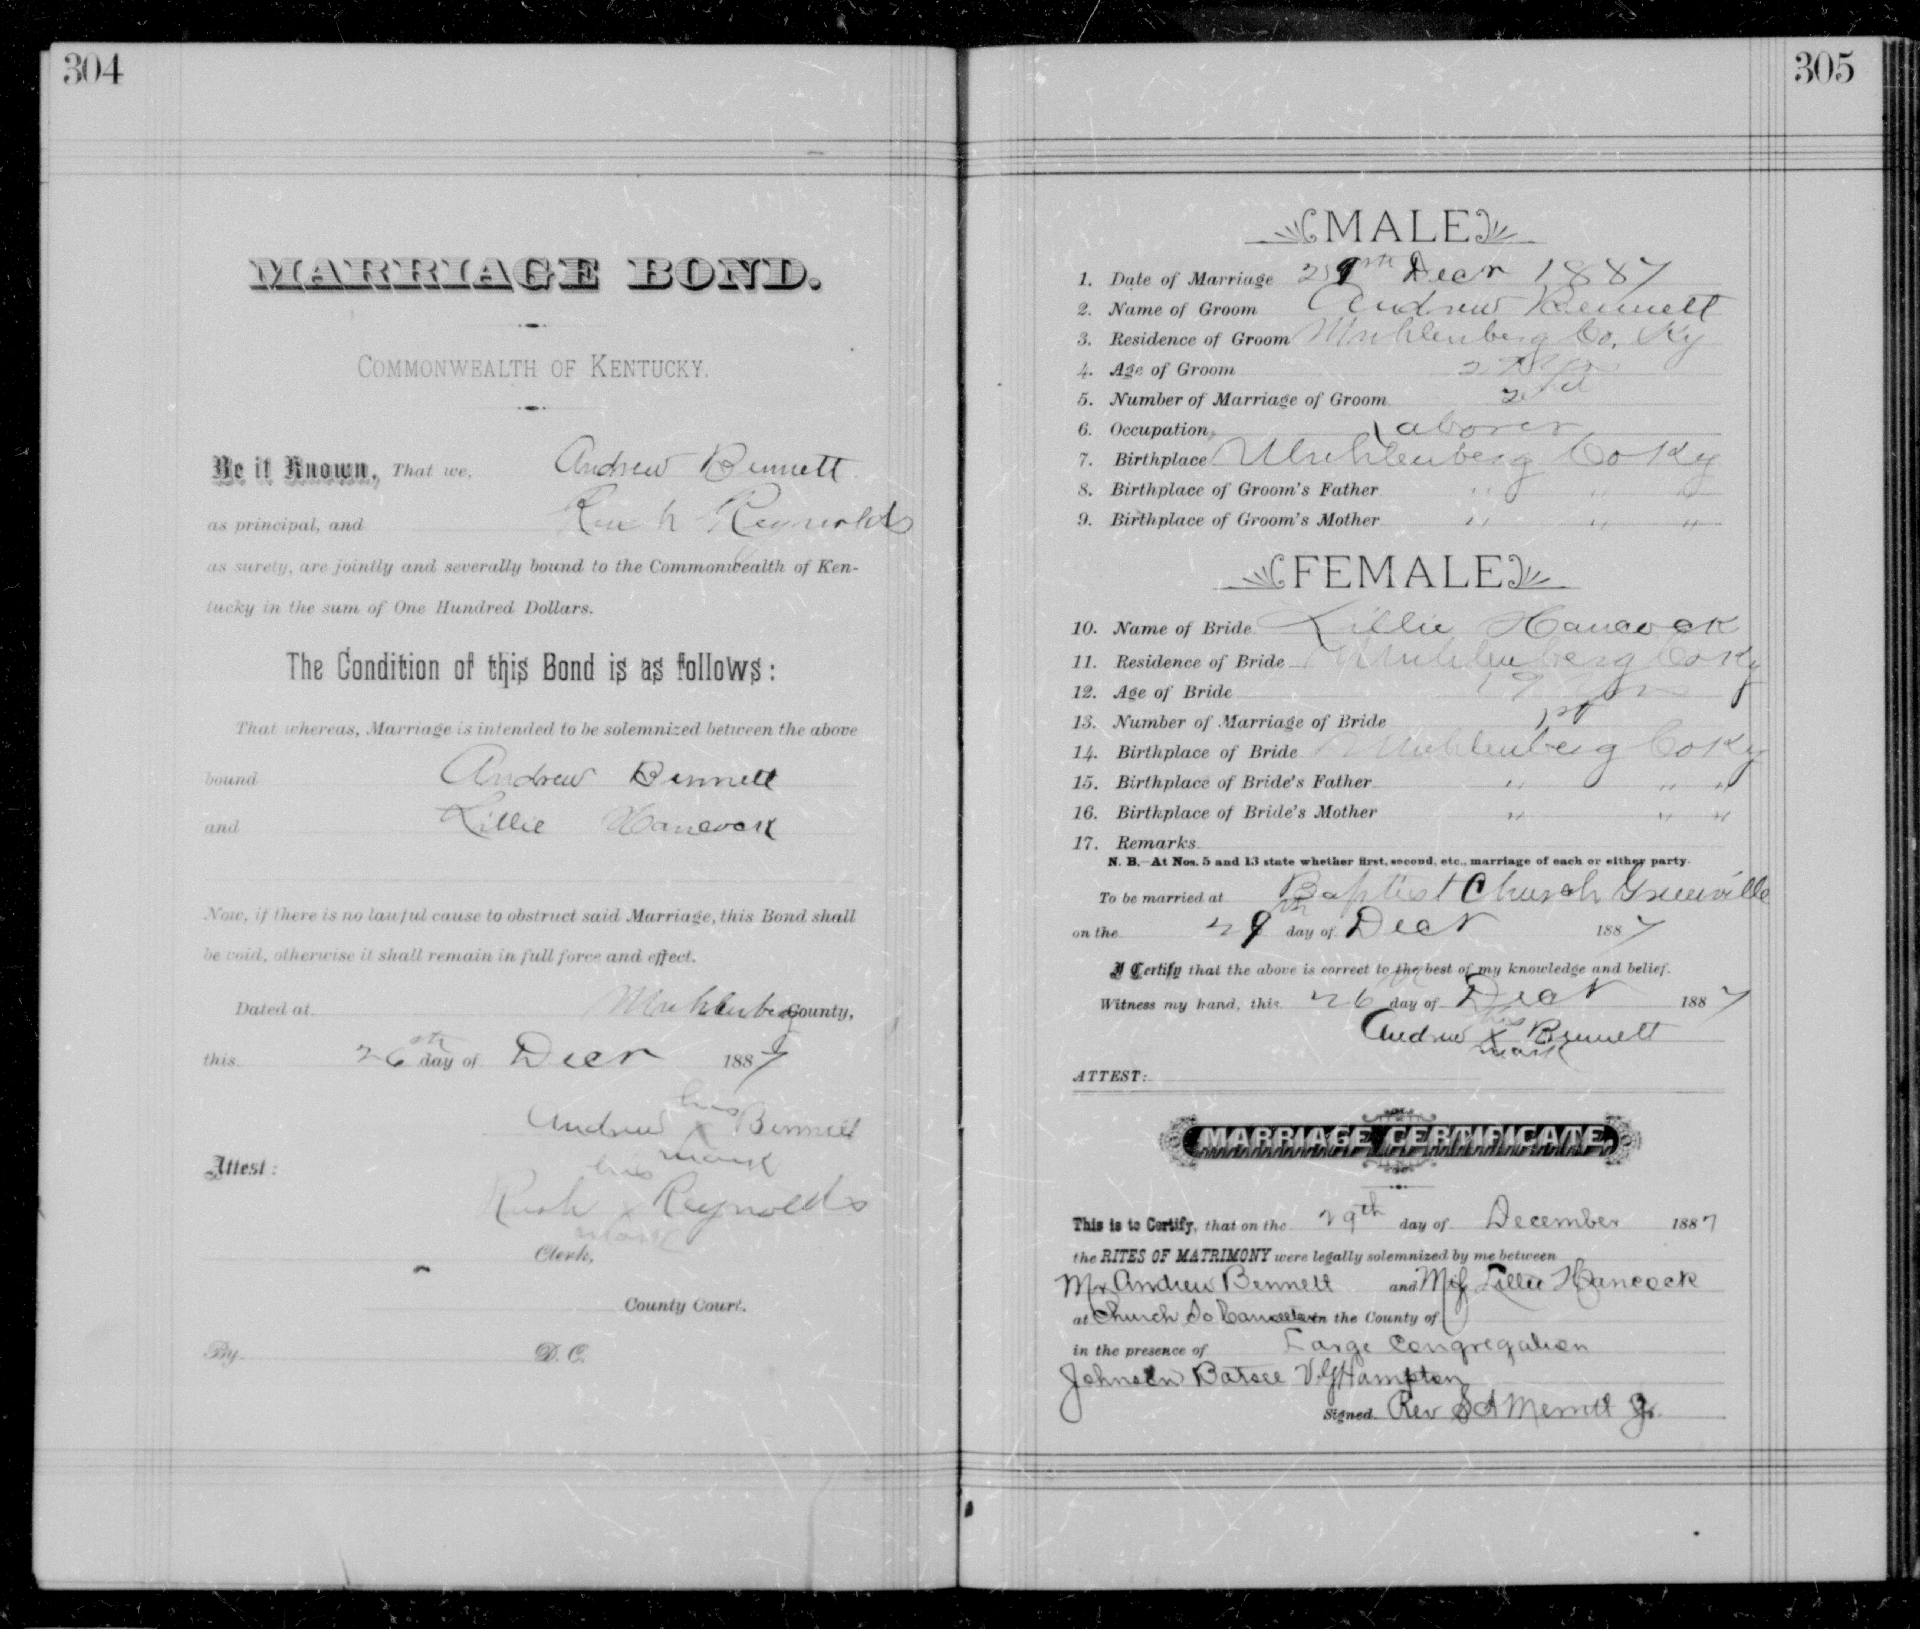 304
MARRIAGE BOND.
COMMONWEALTH OF KENTUCKY.
Be it Known, That we, Andrew Bennett
as principal, and Rush Reynolds
as surety, are jointly and severally bound to the Commonwealth of Ken-
tucky in the sum of One Hundred Dollars.
The Condition of this Bond is as follows:
That whereas, Marriage is intended to be solemnized between the above
bound Andrew Bennett
and Lillie Hancock
Now, if there is no lawful cause to obstruct said Marriage, this Bond shall
be void, otherwise it shall remain in full force and effect.
Dated at Muhlenberg County,
this 26th day of Decr 1887
Andrew his x mark Bennett
Attest:
Rush his x mark Reynolds
Clerk,
County Court.
By D. C.
305
MALE
1. Date of Marriage 29th Decr 1887
2. Name of Groom Andrew Bennett
3. Residence of Groom Muhlenberg Co, Ky
4. Age of Groom
5. Number of Marriage of Groom 2nd
6. Occupation, Laborer
7. Birthplace Muhlenberg Co Ky
8. Birthplace of Groom's Father " " "
9. Birthplace of Groom's Mother " " "
FEMALE
10. Name of Bride Lillie Hancock
11. Residence of Bride Muhlenberg Co Ky
12. Age of Bride 19 yrs
13. Number of Marriage of Bride 1st
14. Birthplace of Bride Muhlenberg Co Ky
15. Birthplace of Bride's Father " " "
16. Birthplace of Bride's Mother " " "
17. Remarks
N. B.—At Nos. 5 and 13 state whether first, second, etc., marriage of each or either party.
To be married at Baptist Church Greenville
on the 29th day of Decr 1887
I Certify that the above is correct to the best of my knowledge and belief.
Witness my hand, this 26th day of Decr 1887
Andrew his x mark Bennett
ATTEST:
MARRIAGE CERTIFICATE.
This is to Certify, that on the 29th day of December 1887
the RITES OF MATRIMONY were legally solemnized by me between
Mr Andrew Bennett and Miss Lillie Hancock
at Church in the County of
in the presence of Large Congregation
Johnson V. G Hampton
Signed. Rev S A Merritt Jr.